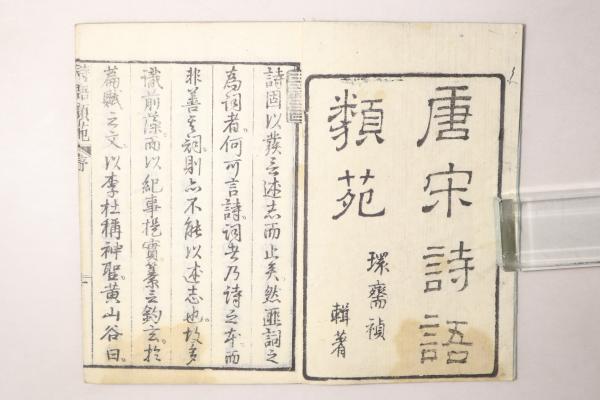 唐宋詩語
類苑
環齋禎
輯著
詩固以發言述志而止矣然匪詞之
為詞者何可言詩詞者乃詩之本而
非善其詞則亦不能以述志也故多
識前藻而以紀事撮實纂言鈎玄於
篇賦之文以李杜稱神聖黃山谷曰
詩語類苑 序